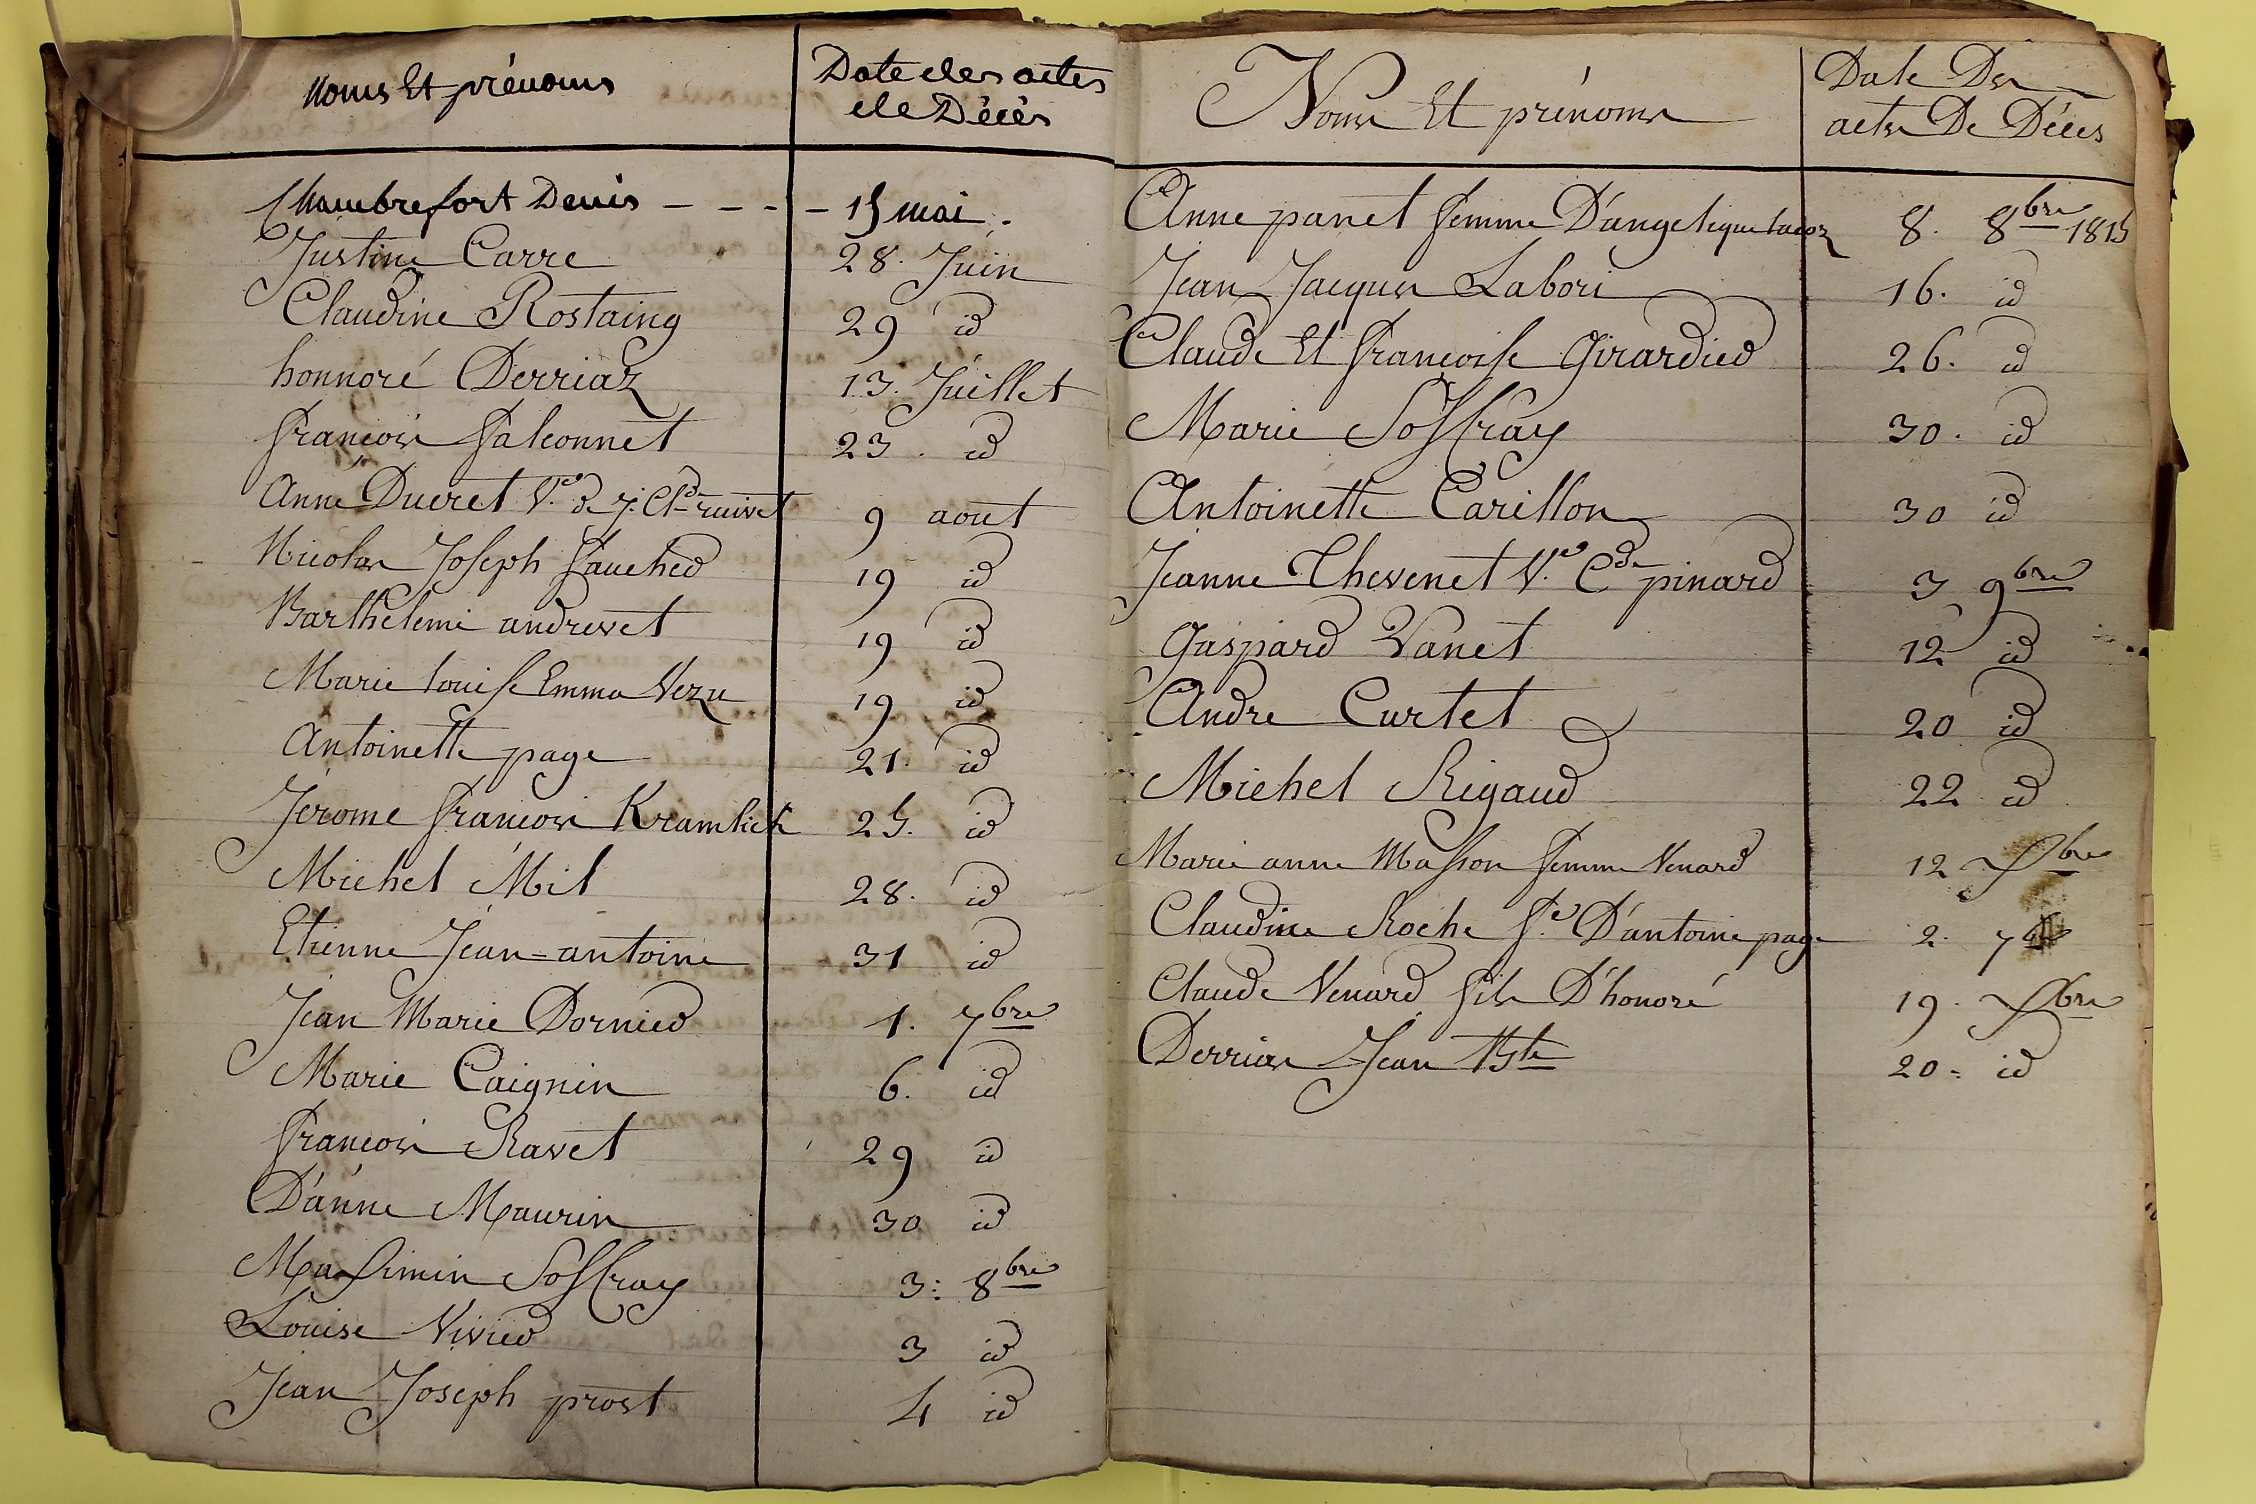 Noms Et prénoms
Date des actes
de Décès
Chambrefort Denis - - - - 15 mai.
Justine Carre 28. Juin
Claudine Rostaing 29 id
honnoré Derriaz 13. Juillet
françois falconnet 23. id
Anne Ducret Ve. de j. Cde ruivet 9 aout
Nicolas Joseph faucher 19 id
Barthelemi andrevet 19 id
Marie louise Emma Vezu 19 id
Antoinette page 21. id
Jérome françois Kramlick 25. id
Michel Mil 28. id
Etienne Jean=antoine 31 id
Jean Marie Dornier 1. 7bre
Marie Caignin 6. id
françois Ravet 29 id
D'anne Maurin 30 id
Maximin Soffray 3: 8bre
Louise Vivier 3 id
Jean Joseph prost 4 id
Noms Et prénoms
Date Des
actes De Décès
Anne panet femme D'angelique 8. 8bre 1815
Jean Jacques Labori 16. id
Claude Et françoise Girardier 26. id
Marie Soffray 30. id
Antoinette Carillon 30 id
Jeanne Thevenet Ve. Cde pinard 3 9bre
Gaspard Vanet 12 id
Andre Curtet 20 id
Michel Rigaud 22 id
Marie anne Masson femme Venard 12 Xbre
Claudine Roche fe. D'antoine page 2. 7bre
Claude Venard fils D'honoré 19. Xbre
Derrias Jean Bste 20= id